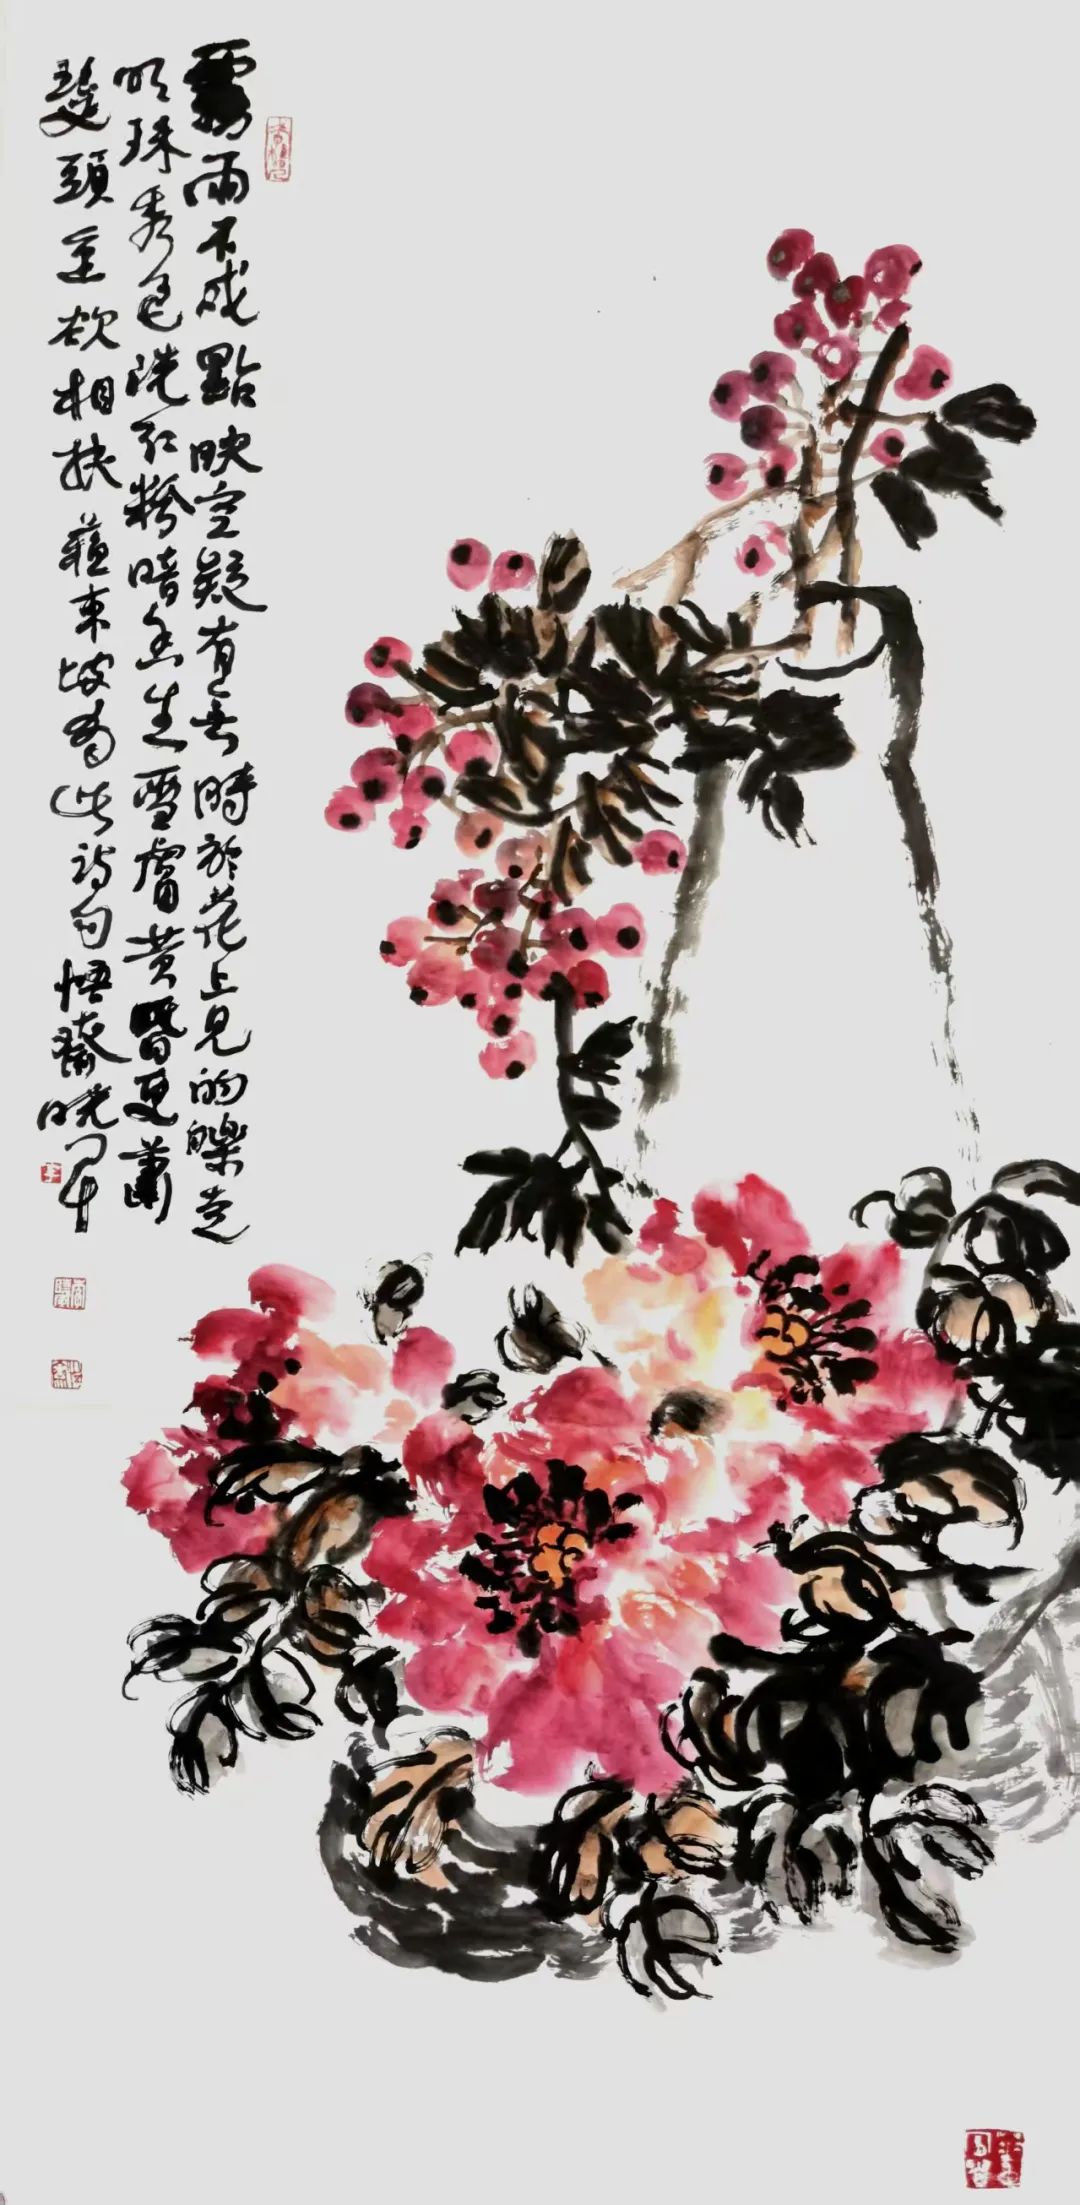 霧雨不成點映空疑有无時於花上見的皪走
明珠秀色洗紅粉暗香生雪膚黃昏更蕭
瑟頭重欲相扶蘇東坡有此詩句悟齋曉軍